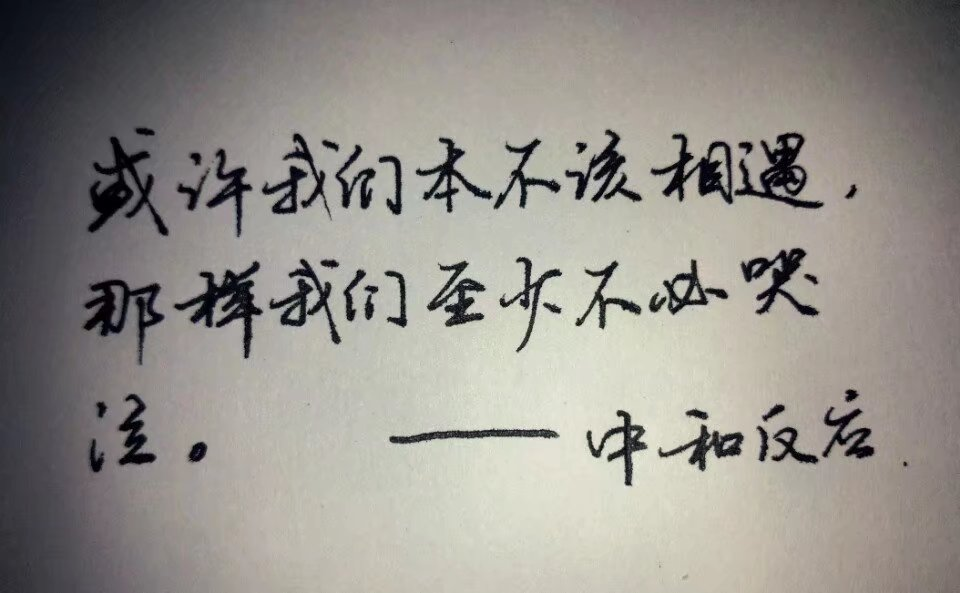 或许我们本不该相遇，
那样我们至少不必哭
泣。——中和反应.